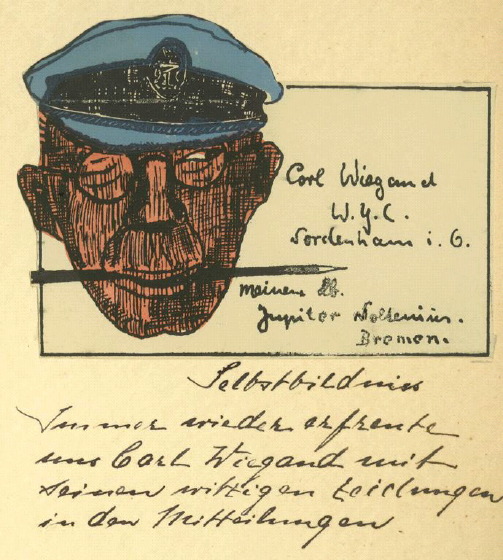 Carl Wiegand
W.Y.C.
Nordenham i. O.
meinem lb.
Jupiter Noltenius.
Bremen.
Selbstbildnis
Immer wieder erfreute
uns Carl Wiegand mit
seinen witzigen Zeichungen
in den Mitteilungen.